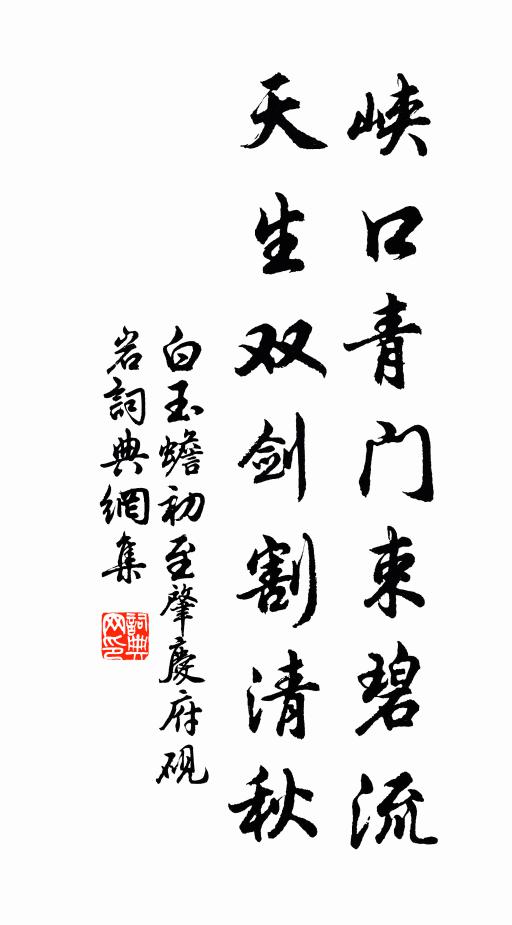 峡口青门束碧流
天生双剑割清秋
白玉蟾初至肇慶府硯
岩詞典網集
詞典网印